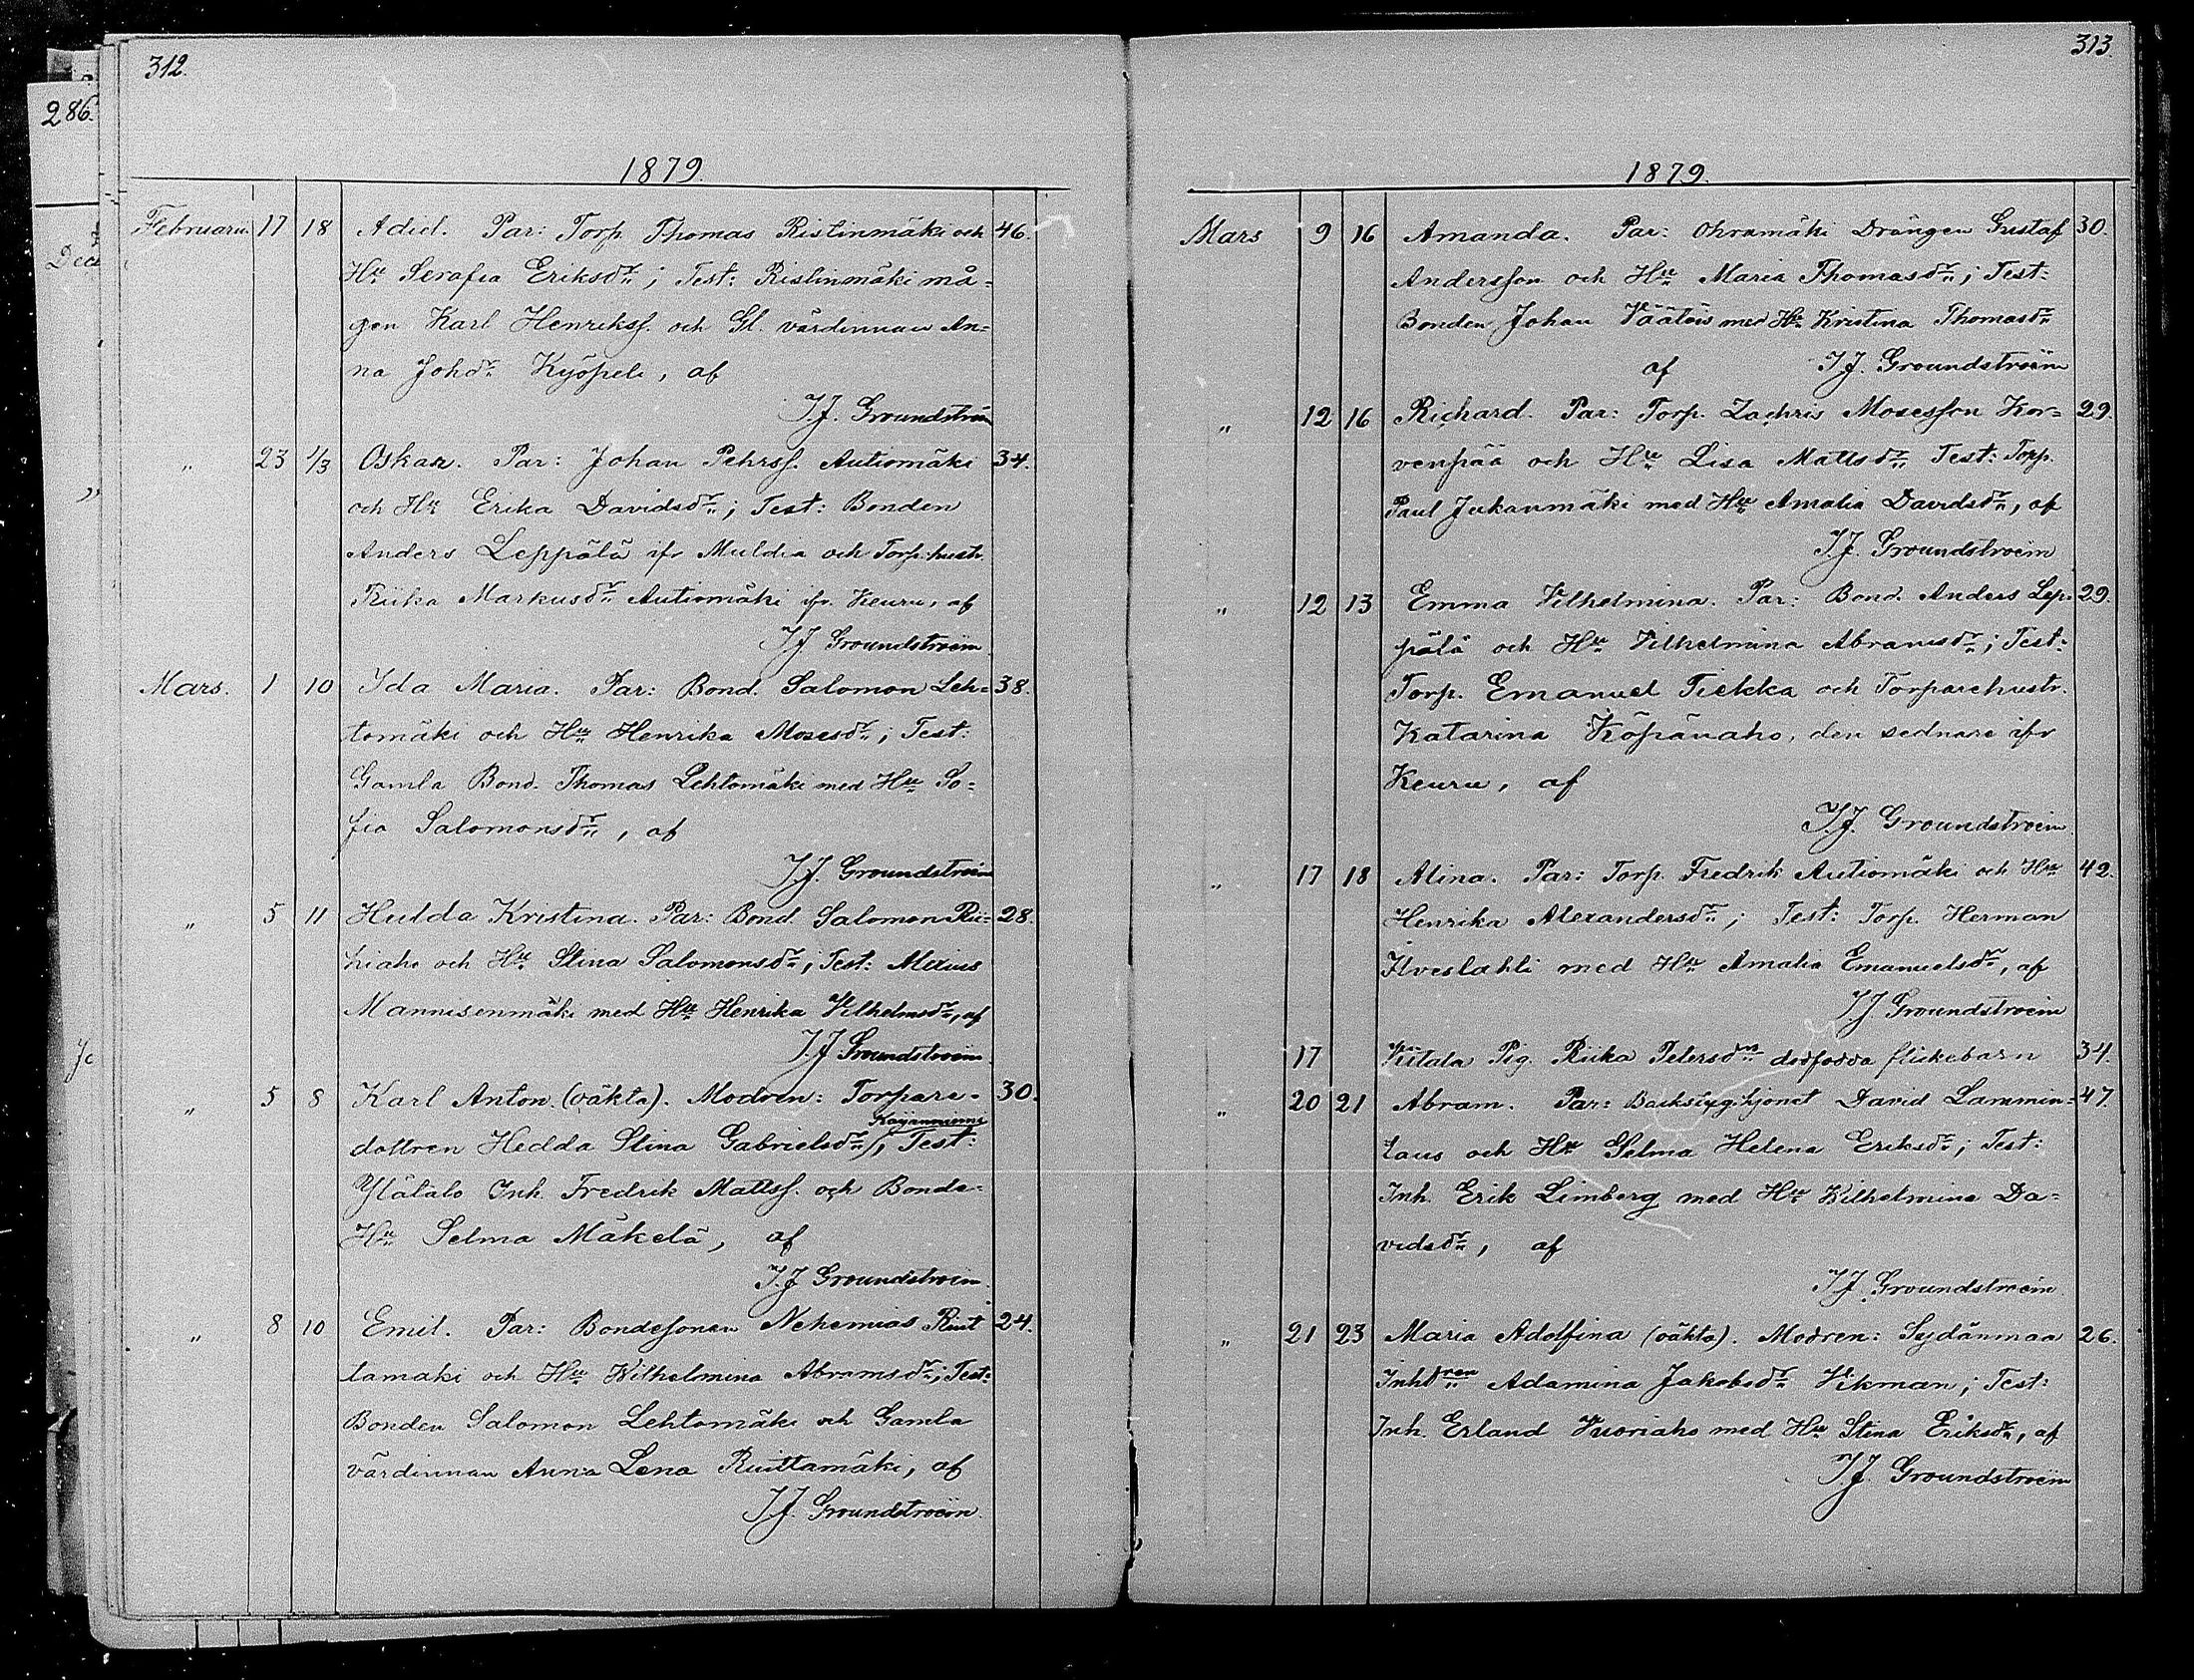 312.
286.
Dec
1879.
Februarii 17 18 Adiel. Par: Torp. Thomas Ristinmäki och 46.
Hu Serafia Eriksdr; Test: Ristinmäki må-
gen Karl Henrikss. och Gl. värdinnan An-
na Johdr Kyöpeli, af
I.J. Groundström
" 23 1/3 Oskar. Par: Johan Pehrss. Autiomäki 34.
och Hu Erika Davidsdr; Test: Bonden
Anders Leppälä ifr Muldia och Torp.hustr.
Riika Markusdr Autiomäki ifr. Keuru, af
I.J. Groundstroem
Mars. 1 10 Ida Maria. Par: Bond. Salomon Leh- 38.
tomäki och Hu Henrika Mosesdr; Test:
Gamla Bond. Thomas Lehtomäki med Hu So-
fia Salomonsdr, af
I.J. Groundstroem
" 5 11 Hulda Kristina. Par: Bond. Salomon Rii- 28.
hiaho och Hu Stina Salomonsdr; Test: Alexius
Mannisenmäki med Hu Henrika Vilhelmsdr, af
I.J. Groundstroem
" 5 8 Karl Anton. (oäkta). Modren: Torpare- 30.
dottren Hedda Stina Gabrielsdr Käyänniemi, Test:
Ylätalo Inh. Fredrik Mattss. och Bonde-
Hu Selma Mäkelä, af
I.J. Groundstroem
" 8 10 Emil. Par: Bondesonen Nehemias Ruut 24.
tamäki och Hu Wilhelmina Abramsdr; Test:
Bonden Salomon Lehtomäki och Gamla
värdinnan Anna Lena Ruuttamäki, af
I.J. Groundstroem.
313.
1879.
Mars 9 16 Amanda. Par: Ohramäki Drängen Gustaf 30.
Andersson och Hu Maria Thomasdr; Test:
Bonden Johan Väätäis med Hu Kristina Thomasdr
af I.J. Groundstroem
" 12 16 Richard. Par: Torp. Zachris Mosesson Kor- 29.
venpää och Hu Lisa Mattsdr Test: Torp.
Paul Jukanmäki med Hu Amalia Davidsdr, af
I.J. Groundstroem
" 12 13 Emma Vilhelmina. Par: Bond. Anders Lep- 29.
pälä och Hu Vilhelmina Abramsdr; Test:
Torp. Emanuel Tiekka och Torparehustr.
Katarina Köpänaho, den sednare ifr
Keuru, af
I.J. Groundstroem
" 17 18 Alina. Par: Torp. Fredrik Autiomäki och Hu 42.
Henrika Alexandersdr; Test: Torp. Herman
Ilveslahti med Hu Amalia Emanuelsdr, af
I.J. Groundstroem
17 Riitala Pig. Riika Petersdrs dödfödda flickebarn 34.
" 20 21 Abram. Par: Backstug.hjonet David Lammin- 47.
taus och Hu Selma Helena Eriksdr; Test:
Inh. Erik Limberg med Hu Vilhelmina Da-
vidsdr, af
I.J. Groundstroem
" 21 23 Maria Adolfina (oäkta). Modren: Sydänmaa 26.
Inhdren Adamina Jakobsdr Vikman; Test:
Inh. Erland Vuoriaho med Hu Stina Eriksdr, af
I.J. Groundstroem